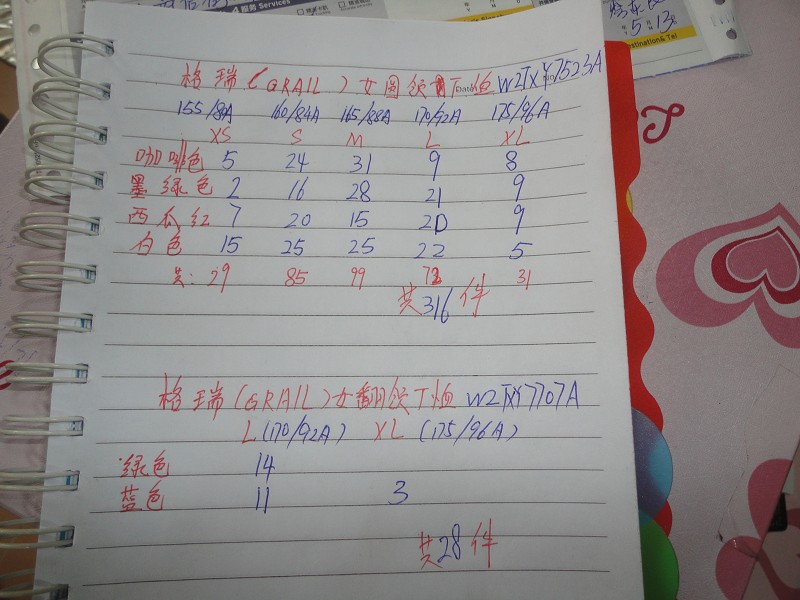 4 服务 Services
5 13
Destination & Tel
格瑞(GRAIL)女圆领T恤W2TXY7523A
155/80A 160/84A 165/88A 170/92A 175/96A
XS S M L XL
咖啡色 5 24 31 9 8
墨绿色 2 16 28 21 9
西瓜红 7 20 15 20 9
白色 15 25 25 22 5
共: 29 85 99 72 31
共316件
格瑞(GRAIL)女翻领T恤W2TXY7707A
L(170/92A) XL (175/96A)
绿色 14
蓝色 11 3
共28件